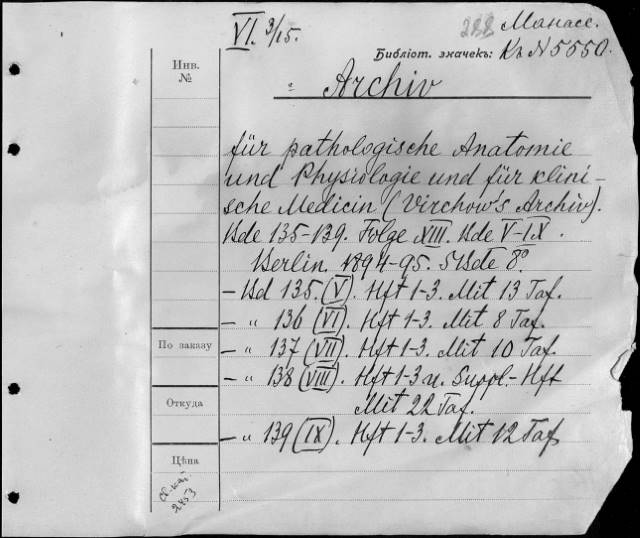 VI. 3/15.
288 Манасс.
Библіот. значекъ: Къ N 5550.
Инв. №
Archiv
für pathologische Anatomie
und Physiologie und für klini-
sche Medicin (Virchow's Archiv).
Bde 135-139. Folge XIII. Bde V-IX.
Berlin. 1894-95. 5 Bde 8º
- Bd 135. (V). Hft 1-3. Mit 13 Taf.
- " 136 (VI). Hft 1-3. Mit 8 Taf.
- " 137 (VII). Hft 1-3. Mit 10 Taf.
- " 138 (VIII). Hft 1-3 u. Suppl.-Hft
Mit 22 Taf.
- " 139 (IX). Hft 1-3. Mit 12 Taf
По заказу
Откуда
Цѣна
2453